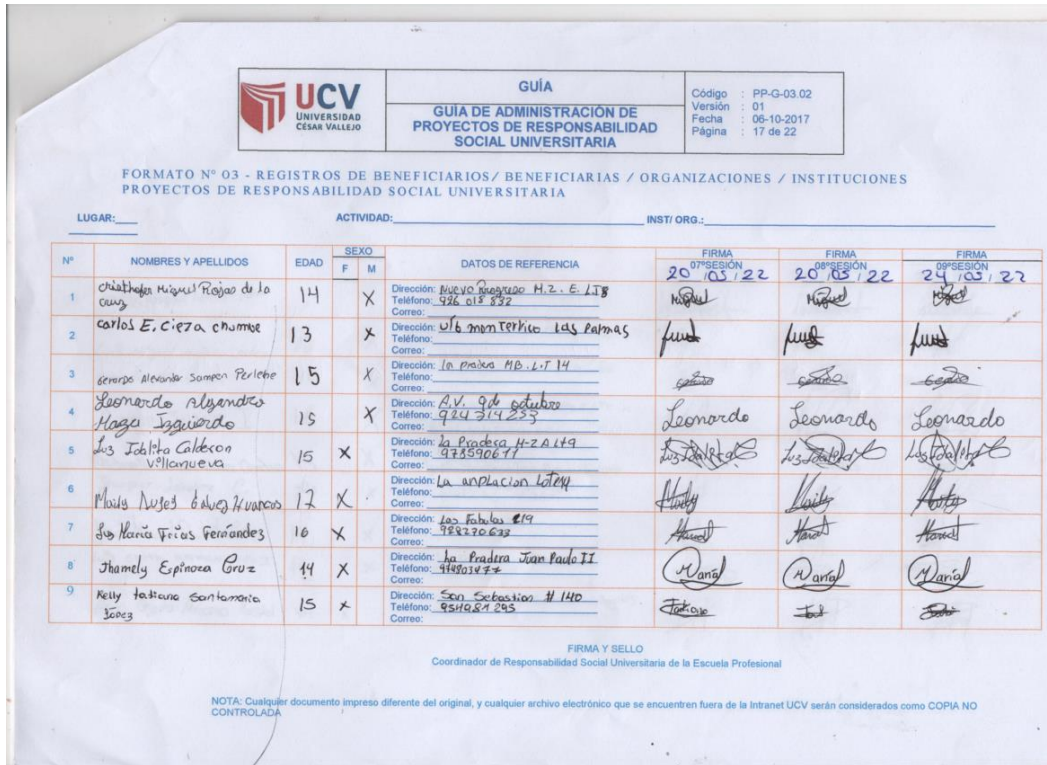 UCV
UNIVERSIDAD
CÉSAR VALLEJO
GUÍA
GUÍA DE ADMINISTRACIÓN DE
PROYECTOS DE RESPONSABILIDAD
SOCIAL UNIVERSITARIA
Código : PP-G-03.02
Versión : 01
Fecha : 06-10-2017
Página : 17 de 22
FORMATO Nº 03 - REGISTROS DE BENEFICIARIOS/ BENEFICIARIAS / ORGANIZACIONES / INSTITUCIONES
PROYECTOS DE RESPONSABILIDAD SOCIAL UNIVERSITARIA
LUGAR: ACTIVIDAD: INST/ ORG.:
Nº NOMBRES Y APELLIDOS EDAD SEXO F M DATOS DE REFERENCIA FIRMA 07ºSESIÓN 20/05/22 FIRMA 08ºSESIÓN 20/05/22 FIRMA 09ºSESIÓN 24/05/22
1 Miguel Rojas de la cruz 14 X Dirección: Nuevo Progreso M.Z. E. LT8 Miguel Miguel Miguel
Teléfono: 926 018 832
Correo:
2 carlos E. Cieza chumbe 13 X Dirección: Las Palmas
Teléfono:
Correo:
3 Alexander 15 X Dirección: la pradera MB. L.T 14
Teléfono:
Correo:
4 Leonardo Alejandro Izquierdo 15 X Dirección: A.V. 9 de octubre Leonardo Leonardo Leonardo
Teléfono: 924 314 253
Correo:
5 Luz Calderon Villanueva 15 X Dirección: La Pradera
Teléfono:
Correo:
6 17 X Dirección: La
Teléfono:
Correo:
7 Luz María Frias Fernández 16 X Dirección: Las Fabulas
Teléfono:
Correo:
8 Jhamely Espinoza Cruz 14 X Dirección: La Pradera Juan Pablo II
Teléfono:
Correo:
9 Kelly tatiana Santamaria López 15 X Dirección: San Sebastian # 140
Teléfono: 954981295
Correo:
FIRMA Y SELLO
Coordinador de Responsabilidad Social Universitaria de la Escuela Profesional
NOTA: Cualquier documento impreso diferente del original, y cualquier archivo electrónico que se encuentren fuera de la Intranet UCV serán considerados como COPIA NO
CONTROLADA